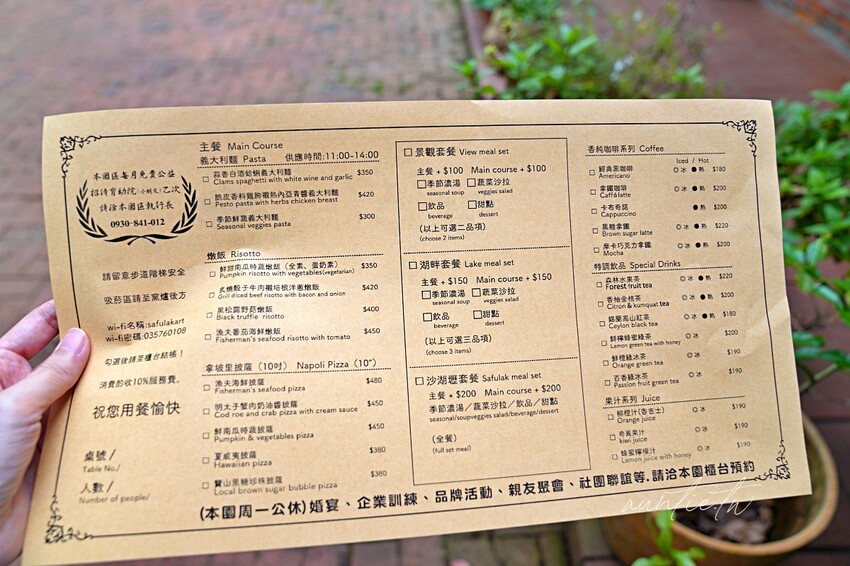 本園區每月免費公益
招待育幼院(小朋友)乙次
請洽本園區執行長
0930-841-012
請留意步道階梯安全
吸菸區請至窯爐後方
wi-fi名稱:safulakart
wi-fi密碼:035760108
勾選後請至櫃台結帳！
消費酌收10%服務費。
祝您用餐愉快
桌號/
Table No./
人數/
Number of people/
主餐 Main Course
義大利麵 Pasta 供應時間:11:00-14:00
蒜香白酒蛤蜊義大利麵 $350
Clams spaghetti with white wine and garlic
脆皮香料雞胸襯熱內亞青醬義大利麵 $420
Pesto pasta with herbs chicken breast
季節鮮蔬義大利麵 $300
Seasonal veggies pasta
燉飯 Risotto
鮮甜南瓜時蔬燉飯（全素、蛋奶素） $350
Pumpkin risotto with vegetables(vegetarian)
炙燒骰子牛肉襯培根洋蔥燉飯 $420
Grill diced beef risotto with bacon and onion
黑松露野菇燉飯 $400
Black truffle risotto
漁夫番茄海鮮燉飯 $450
Fisherman's seafood risotto with tomato
拿坡里披薩（10吋） Napoli Pizza（10"）
漁夫海鮮披薩 $480
Fisherman's seafood pizza
明太子蟹肉奶油醬披薩 $460
Cod roe and crab pizza with cream sauce
鮮南瓜時蔬披薩 $450
Pumpkin & vegetables pizza
夏威夷披薩 $380
Hawaiian pizza
寶山黑糖珍珠披薩 $380
Local brown sugar bubble pizza
景觀套餐 View meal set
主餐 + $100 Main course + $100
季節濃湯 蔬菜沙拉
seasonal soup veggies salad
飲品 甜點
beverage dessert
(以上可選二品項)
(choose 2 items)
湖畔套餐 Lake meal set
主餐 + $150 Main course + $150
季節濃湯 蔬菜沙拉
seasonal soup veggies salad
飲品 甜點
beverage dessert
(以上可選三品項)
(choose 3 items)
沙湖壢套餐 Safulak meal set
主餐 + $200 Main course + $200
季節濃湯／蔬菜沙拉／飲品／甜點
seasonal/soupveggies salad/beverage/dessert
(全餐)
(full set meal)
香純咖啡系列 Coffee
Iced / Hot
經典黑咖啡 冰 熱 $180
Americano
拿鐵咖啡 冰 熱 $200
Caffè latte
卡布奇諾 熱 $200
Cappuccino
黑糖拿鐵 冰 熱 $220
Brown sugar latte
摩卡巧克力拿鐵 冰 熱 $200
Mocha
特調飲品 Special Drinks
森林水果茶 冰 熱 $220
Forest fruit tea
香柚金桔茶 冰 熱 $200
Citron & kumquat tea
錫蘭高山紅茶 冰 熱 $180
Ceylon black tea
鮮檸蜂蜜綠茶 冰 $200
Lemon green tea with honey
鮮橙綠冰茶 冰 $190
Orange green tea
百香綠冰茶 冰 $190
Passion fruit green tea
果汁系列 Juice
柳橙汁(香吉士) 冰 $190
Orange juice
奇異果汁 冰 $190
kiwi juice
蜂蜜檸檬汁 冰 $190
Lemon juice with honey
(本園周一公休)婚宴、企業訓練、品牌活動、親友聚會、社團聯誼等.請洽本園櫃台預約
auntie.th